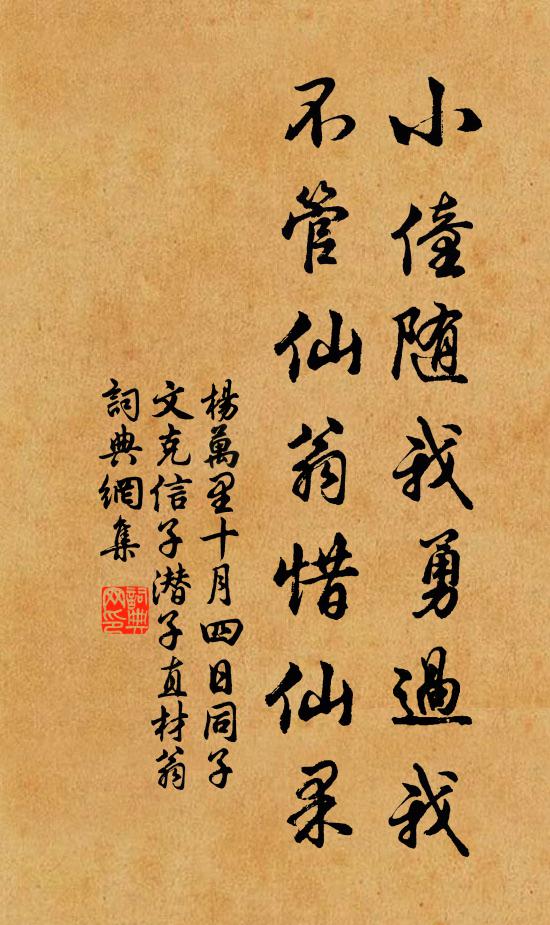 小僮随我勇過我
不管仙翁惜仙果
楊萬里十月四日同子
文克信子潜子直材翁
詞典網集
詞典網印